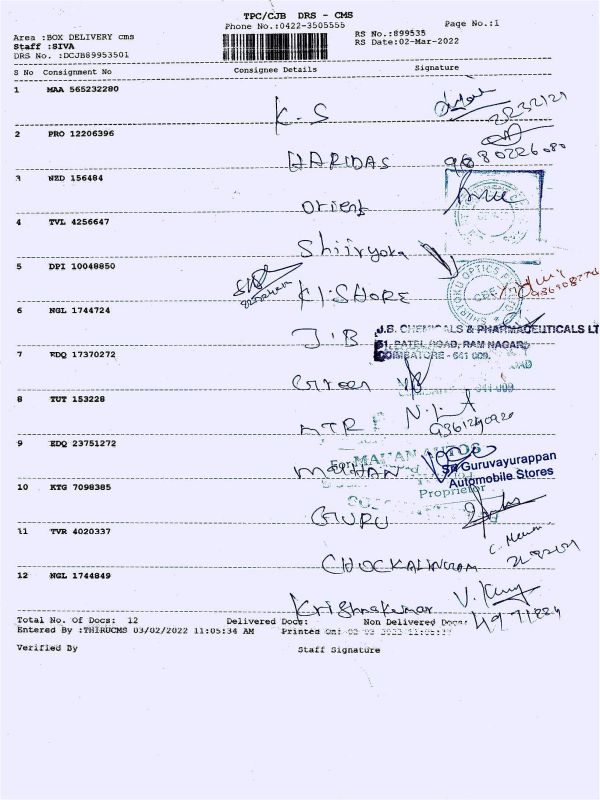 TPC/CJB DRS - CMS
Phone No.:0422-3505555
Page No.:1
Area :BOX DELIVERY cms
RS No.:899535
Staff :SIVA
RS Date:02-Mar-2022
DRS No. :DCJB89953501
S No Consignment No Consignee Details Signature
1 MAA 565232280
K.S
2 PRO 12206396
HARIDAS
3 NZD 156484
Orient
4 TVL 4256647
Shiiryoka
5 DPI 10048850
KISHORE
6 NGL 1744724
J.B
J.B. CHEMICALS & PHARMACEUTICALS LT
51, PATEL ROAD, RAM NAGAR,
COIMBATORE - 641 009.
7 EDQ 17370272
Green
8 TUT 153228
MTR
9 EDQ 23751272
MATHAN
Sri Guruvayurappan
Automobile Stores
Proprietor
10 KTG 7098385
GURU
11 TVR 4020337
CHOCKALINGAM
12 NGL 1744849
Krishnakumar
V.
Total No. Of Docs: 12 Delivered Docs: Non Delivered Docs:
Entered By :THIRUCMS 03/02/2022 11:05:34 AM Printed On:
Verified By Staff Signature